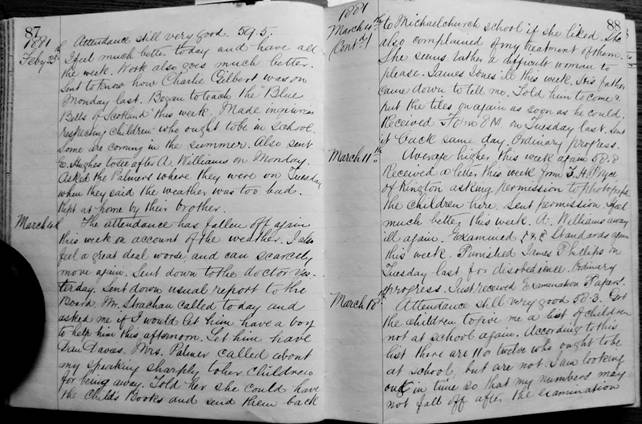 87
1881
Feby 25th
Attendance still very good 59.5.
I feel much better today and have all
the week. Work also goes much better.
Sent to know how Charlie Gilbert was on
Monday last. Began to teach the "Blue
Bells of Scotland" this week. Made inquiries
respecting children who ought to be in School.
Some are coming in the summer. Also sent
to Hughes to see after A. Williams on Monday.
Asked the Palmers where they were on Tuesday
when they said the weather was too bad.
Kept at home by their brother.
March 4th
The attendance has fallen off again
this week on account of the weather. I also
feel a great deal worse and can scarcely
move again. Sent down to the doctor yes-
terday. Sent down usual report to the
Board. Mr. Strachan called today and
asked me if I would let him have a boy
to help him this afternoon. Let him have
Davas. Mrs. Palmer called about
my speaking sharply to her children
for being away. Told her she could have
the Child's Books and send them back
88
1881
March 4th
(Cont'd)
to Michaelchurch school if she liked. She
also complained of my treatment of them.
She seems rather a difficult woman to
please. James Jones ill this week. His father
came down to tell me. Told him to come &
put the tiles on again as soon as he could.
Received Form 8 on Tuesday last. Sent
it back same day. Ordinary progress.
March 11th
Average higher this week again 58.8
Received a letter this week from
of Kington asking permission to photograph
the children here. Sent permission. I feel
much better this week. A. Williams away
ill again. Examined Standards again
this week. Punished James Phillips on
Tuesday last for disobedience. Ordinary
progress. Just received Examination Papers.
March 18th
Attendance still very good 58.3. Got
the children to give me a list of children
not at school again. According to this
list there are 11 or twelve who ought to be
at school, but are not. I am looking
out in time so that my numbers may
not fall off after the examination